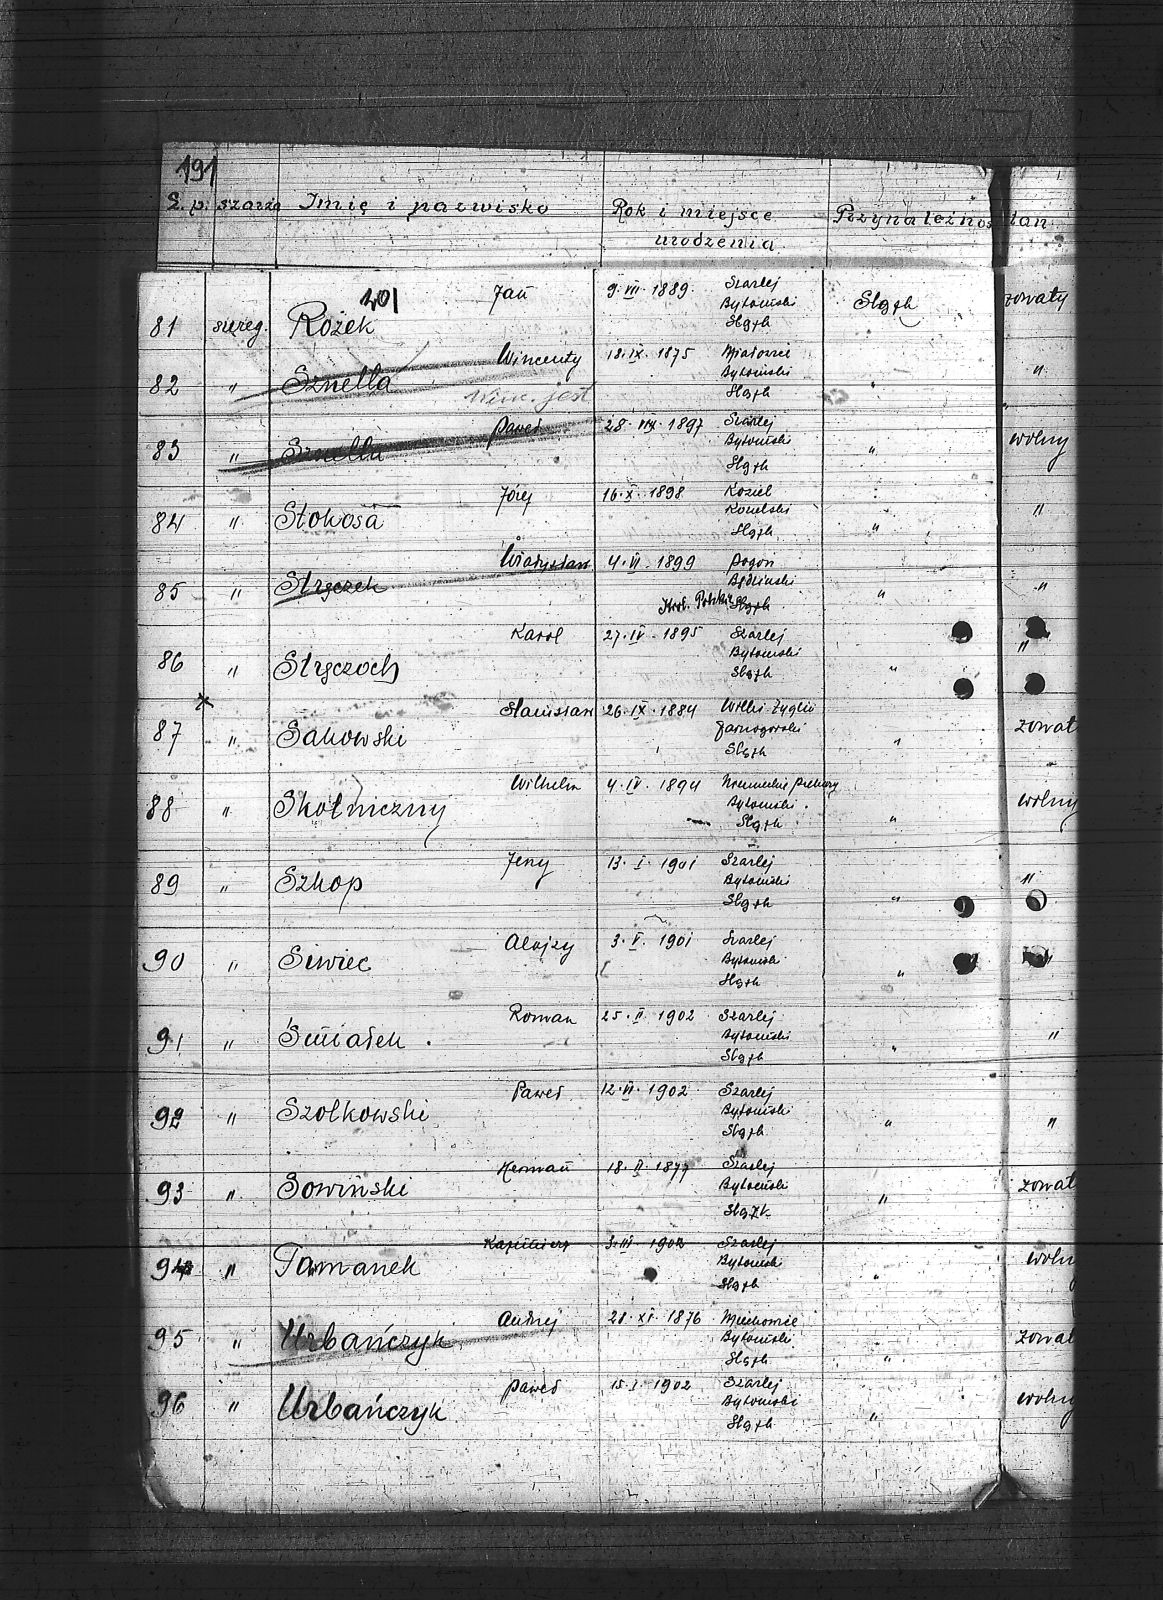 191
L.p. szarża Imię i nazwisko Rok i miejsce urodzenia Przynależnoś tan
101
81 szereg. Rożek Jan 9.VII.1889. Szarlej Bytomski Śląsk Śląsk zonaty
82 " Sznella Wincenty 18.IX.1875 Bytomski Śląsk " "
jest
83 " Sznella Paweł 28.VIII.1897 Szarlej Bytomski Śląsk " wolny
84 " Stokosa Józef 16.X.1898 Koziel Kozielski Śląsk " "
85 " Stryczek Władysław 4.VI.1899 Pogoń Będziński Król. Polskie Śląsk " "
86 " Stryczoch Karol 27.IV.1895 Szarlej Bytomski Śląsk " "
x
87 " Sakowski Stanisław 26.IX.1884 Żyglin Tarnogórski Śląsk " zonat
88 " Skotniczny Wilhelm 4.IV.1894 Niemieckie Piekary Bytomski Śląsk " wolny
89 " Szkop Jerzy 13.I.1901 Szarlej Bytomski Śląsk " "
90 " Siwiec Alojzy 3.V.1901 Szarlej Bytomski Śląsk " "
91 " Śmiałek Roman 25.II.1902 Szarlej Bytomski Śląsk " "
92 " Szolkowski Paweł 12.VI.1902 Szarlej Bytomski Śląsk " "
93 " Sowiński Herman 18.II.1877 Szarlej Bytomski Śląsk " zonat
94 " Tomanek Kazimierz 3.III.1902 Szarlej Bytomski Śląsk " woln
95 " Urbańczyk Andrzej 28.XI.1876 Bytomski Śląsk " zonat
96 " Urbańczyk Paweł 15.I.1902 Szarlej Bytomski Śląsk " wolny